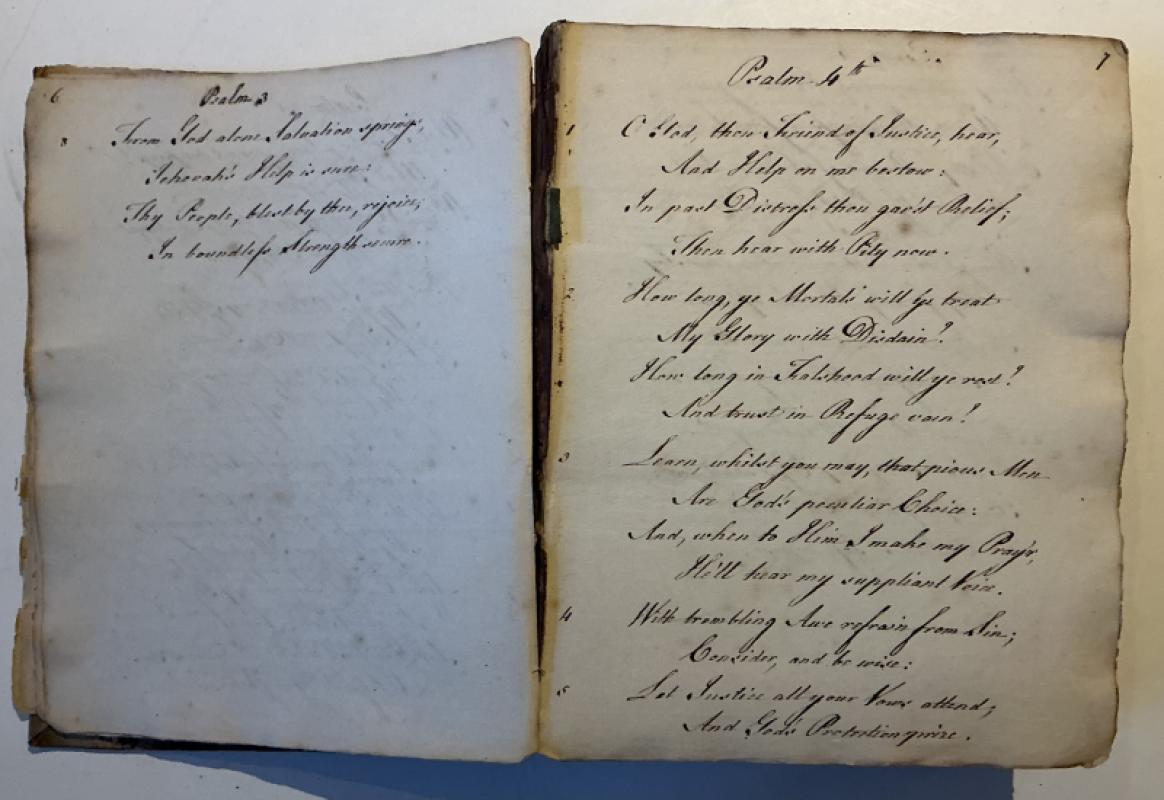 6
Psalm 3
8 From God alone Salvation springs,
Jehovah's Help is sure:
Thy People, blest by thee, rejoice,
In boundless Strength secure.
7
Psalm 4th
1 O God, thou Friend of Justice, hear,
And Help on me bestow:
In past Distress thou gav'st Relief;
Then hear with Pity now.
2 How long, ye Mortals will ye treat
My Glory with Disdain?
How long in Falshood will ye rest?
And trust in Refuge vain?
3 Learn, whilst you may, that pious Men
Are God's peculiar Choice:
And, when to Him I make my Pray'r,
He'll hear my suppliant Voice.
4 With trembling Awe refrain from Sin;
Consider, and be wise:
5 Let Justice all your Vows attend;
And God's Protection prize.